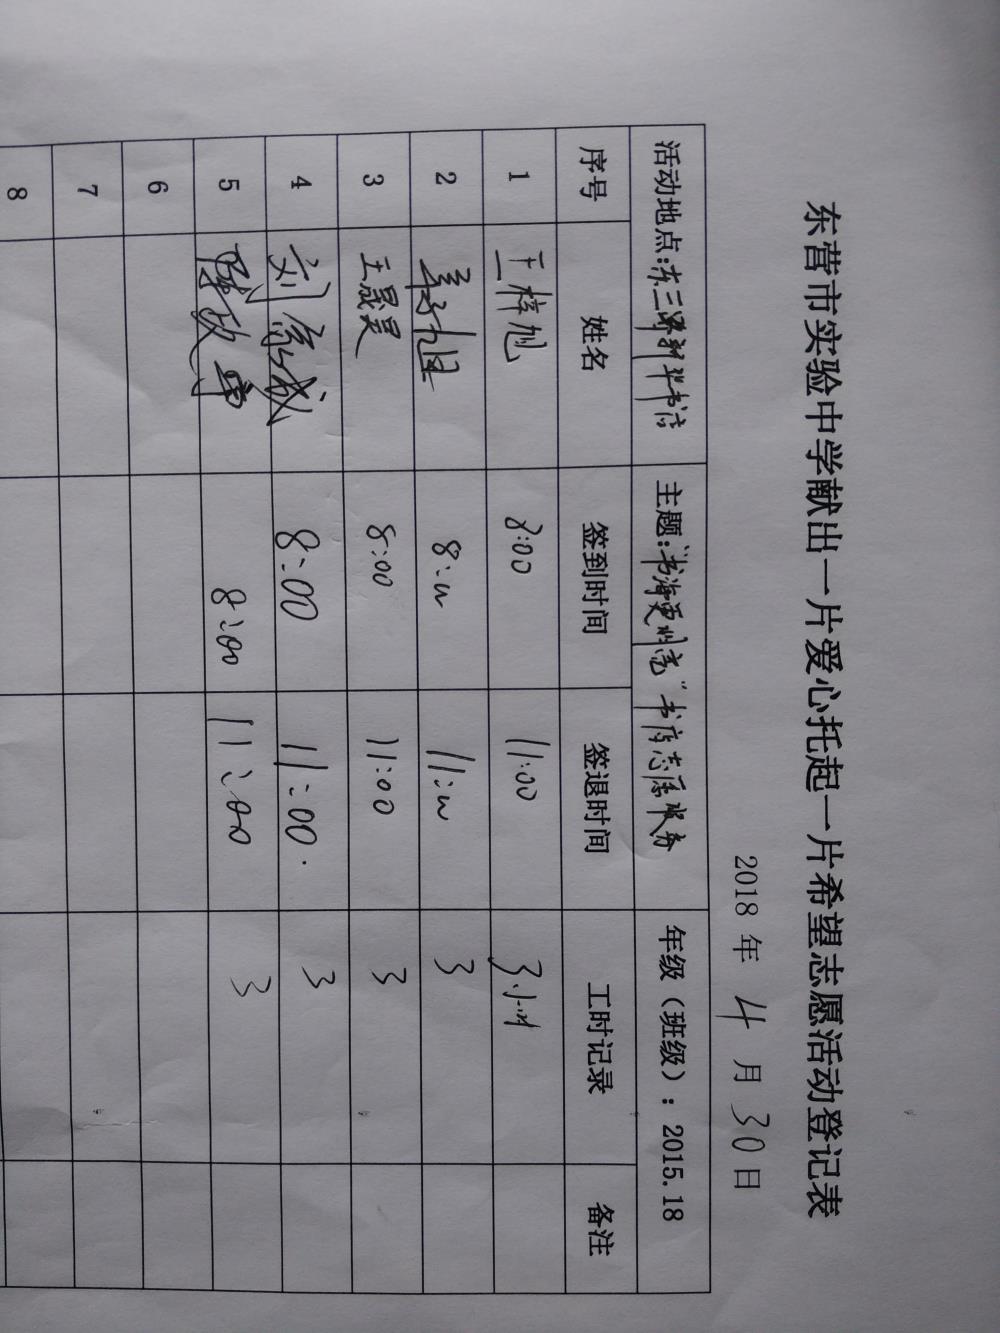 东营市实验中学献出一片爱心托起一片希望志愿活动登记表
2018 年 4 月 30 日
活动地点：东三路新华书店 主题：“书海更州高”书店志愿服务 年级（班级）：2015.18
序号 姓名 签到时间 签退时间 工时记录 备注
1 王梓旭 8:00 11:00 3小时
2 8:00 11:00 3
3 王晟昊 8:00 11:00 3
4 刘家成 8:00 11:00. 3
5 8:00 11:00 3
6
7
8